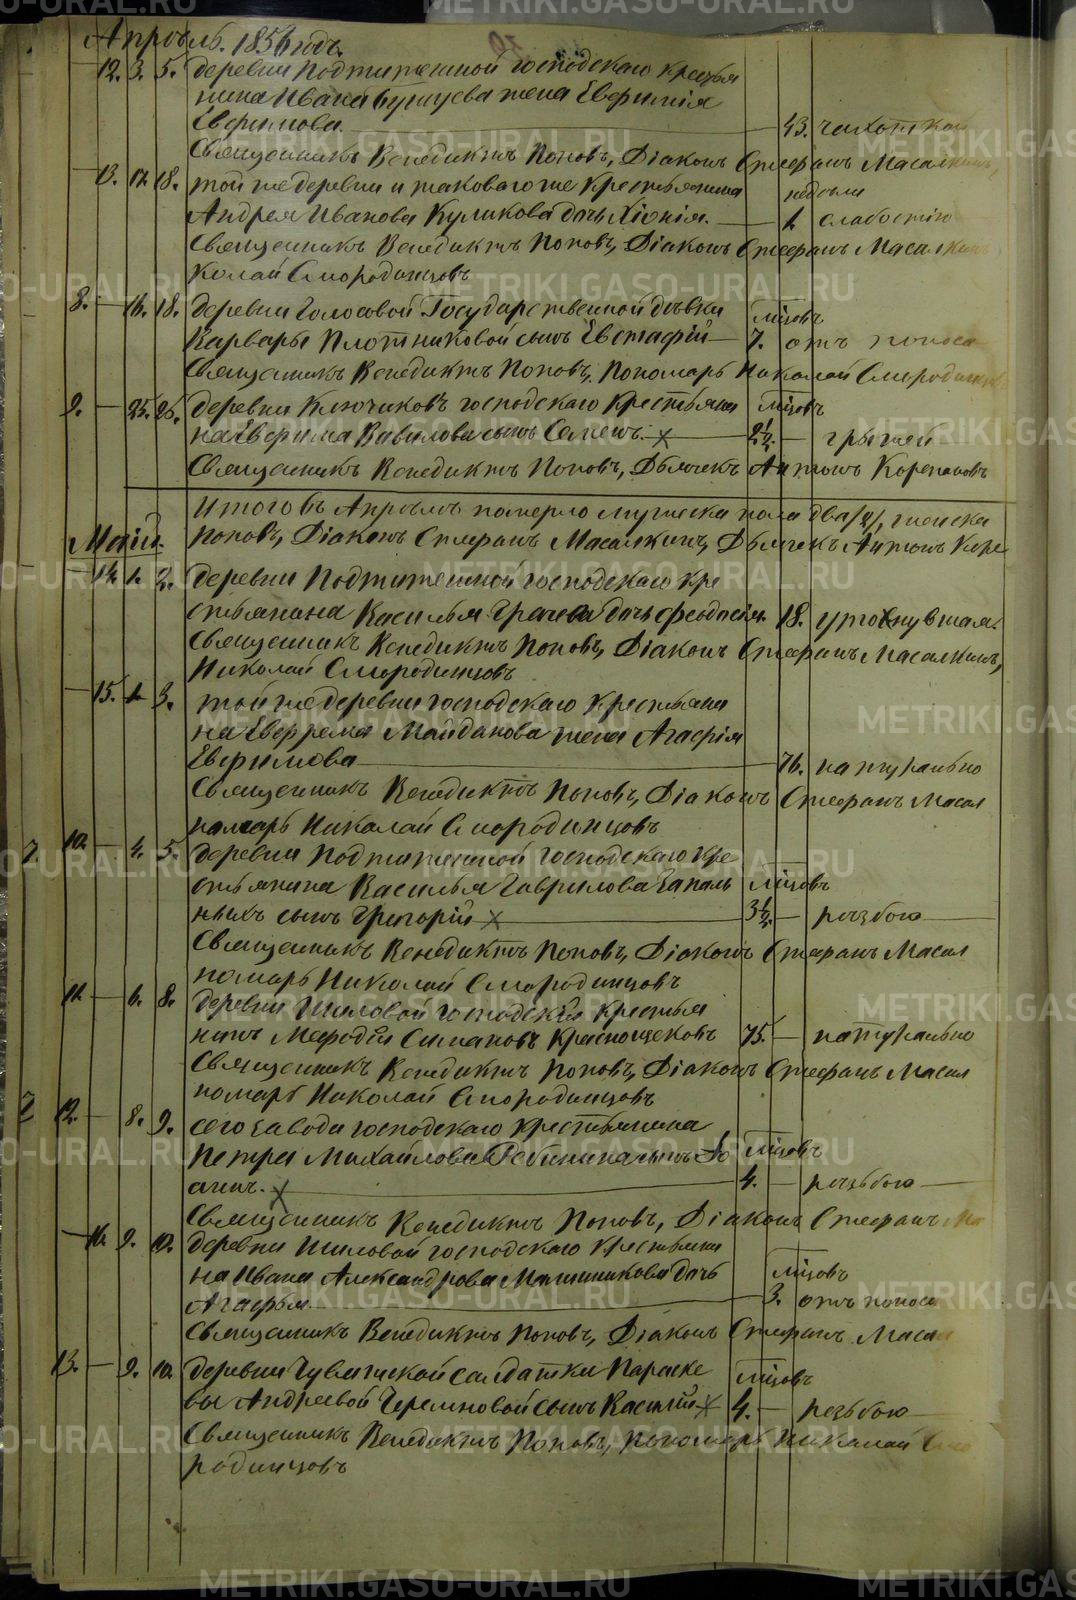 Апрѣль. 1856 годъ.
12. 3. 5. деревни Подтитешной господскаго крестья
нина Ивана Бушуева жена Евфимія
Евфимова. 43. чахоткой
Священникъ Венедиктъ Поповъ, Діаконъ Стефанъ Масалкинъ,
13. 17. 18. той же деревни и таковаго же крестьянина недѣли
Андрея Иванова Куликова дочь Хіонія. 1. слабостію
Священникъ Венедиктъ Поповъ, Діаконъ Стефанъ Масалкинъ
колай Смородинцовъ
8. 16. 18. деревни Голосовой Государственной дѣвки мѣсцовъ
Варвары Плотниковой сынъ Евстафій 7. отъ поноса
Священникъ Венедиктъ Поповъ, Пономарь Николай Смородинцовъ
9. 25. 26. деревни Ключиковъ господскаго крестьяни мѣсцовъ
на Евфима Вавилова сынъ Семенъ. 2½. грыжей
Священникъ Венедиктъ Поповъ, Дьячекъ Антонъ Корепановъ
Итого въ Апрѣлѣ померло мужеска пола два /2/, женска
Маій. Поповъ, Діаконъ Стефанъ Масалкинъ, Дьячекъ Антонъ Коре
14. 1. 2. деревни Подтитешной господскаго кре
стьянина Василья Грачева дочь Феодосія. 18. утонувшая.
Священникъ Венедиктъ Поповъ, Діаконъ Стефанъ Масалкинъ,
Николай Смородинцовъ
15. 1. 3. той же деревни господскаго крестьяни
на Ефрема Майданова жена Агафія
Евфимова 76. натурально
Священникъ Венедиктъ Поповъ, Діаконъ Стефанъ Масал
номарь Николай Смородинцовъ
10. 4. 5. деревни Подтитешной господскаго кре
стьянина Василья Гаврилова мѣсцовъ
ныхъ сынъ Григорій 3½. рѣзбою
Священникъ Венедиктъ Поповъ, Діаконъ Стефанъ Масал
номарь Николай Смородинцовъ
11. 6. 8. деревни Шиловой господскій крестья
нинъ Мефодій Симановъ Краснощековъ 75. натурально
Священникъ Венедиктъ Поповъ, Діаконъ Стефанъ Масал
номарь Николай Смородинцовъ
12. 8. 9. сего завода господскаго крестьянина
Петра Михайлова Рябинина сынъ Іо мѣсцовъ
аннъ. 4. рѣзьбою
Священникъ Венедиктъ Поповъ, Діаконъ Стефанъ Ма
16. 9. 10. деревни Шиловой господскаго крестьяни
на Ивана Александрова дочь мѣсцовъ
Агафья. 3. отъ поноса
Священникъ Венедиктъ Поповъ, Діаконъ Стефанъ Масал
13. 9. 10. деревни солдатки Параске мѣсцовъ
вы Андреевой Черемновой сынъ Василій 4. резьбою
Священникъ Венедиктъ Поповъ, Пономарь Николай Смо
родинцовъ
METRIKI.GASO-URAL.RU